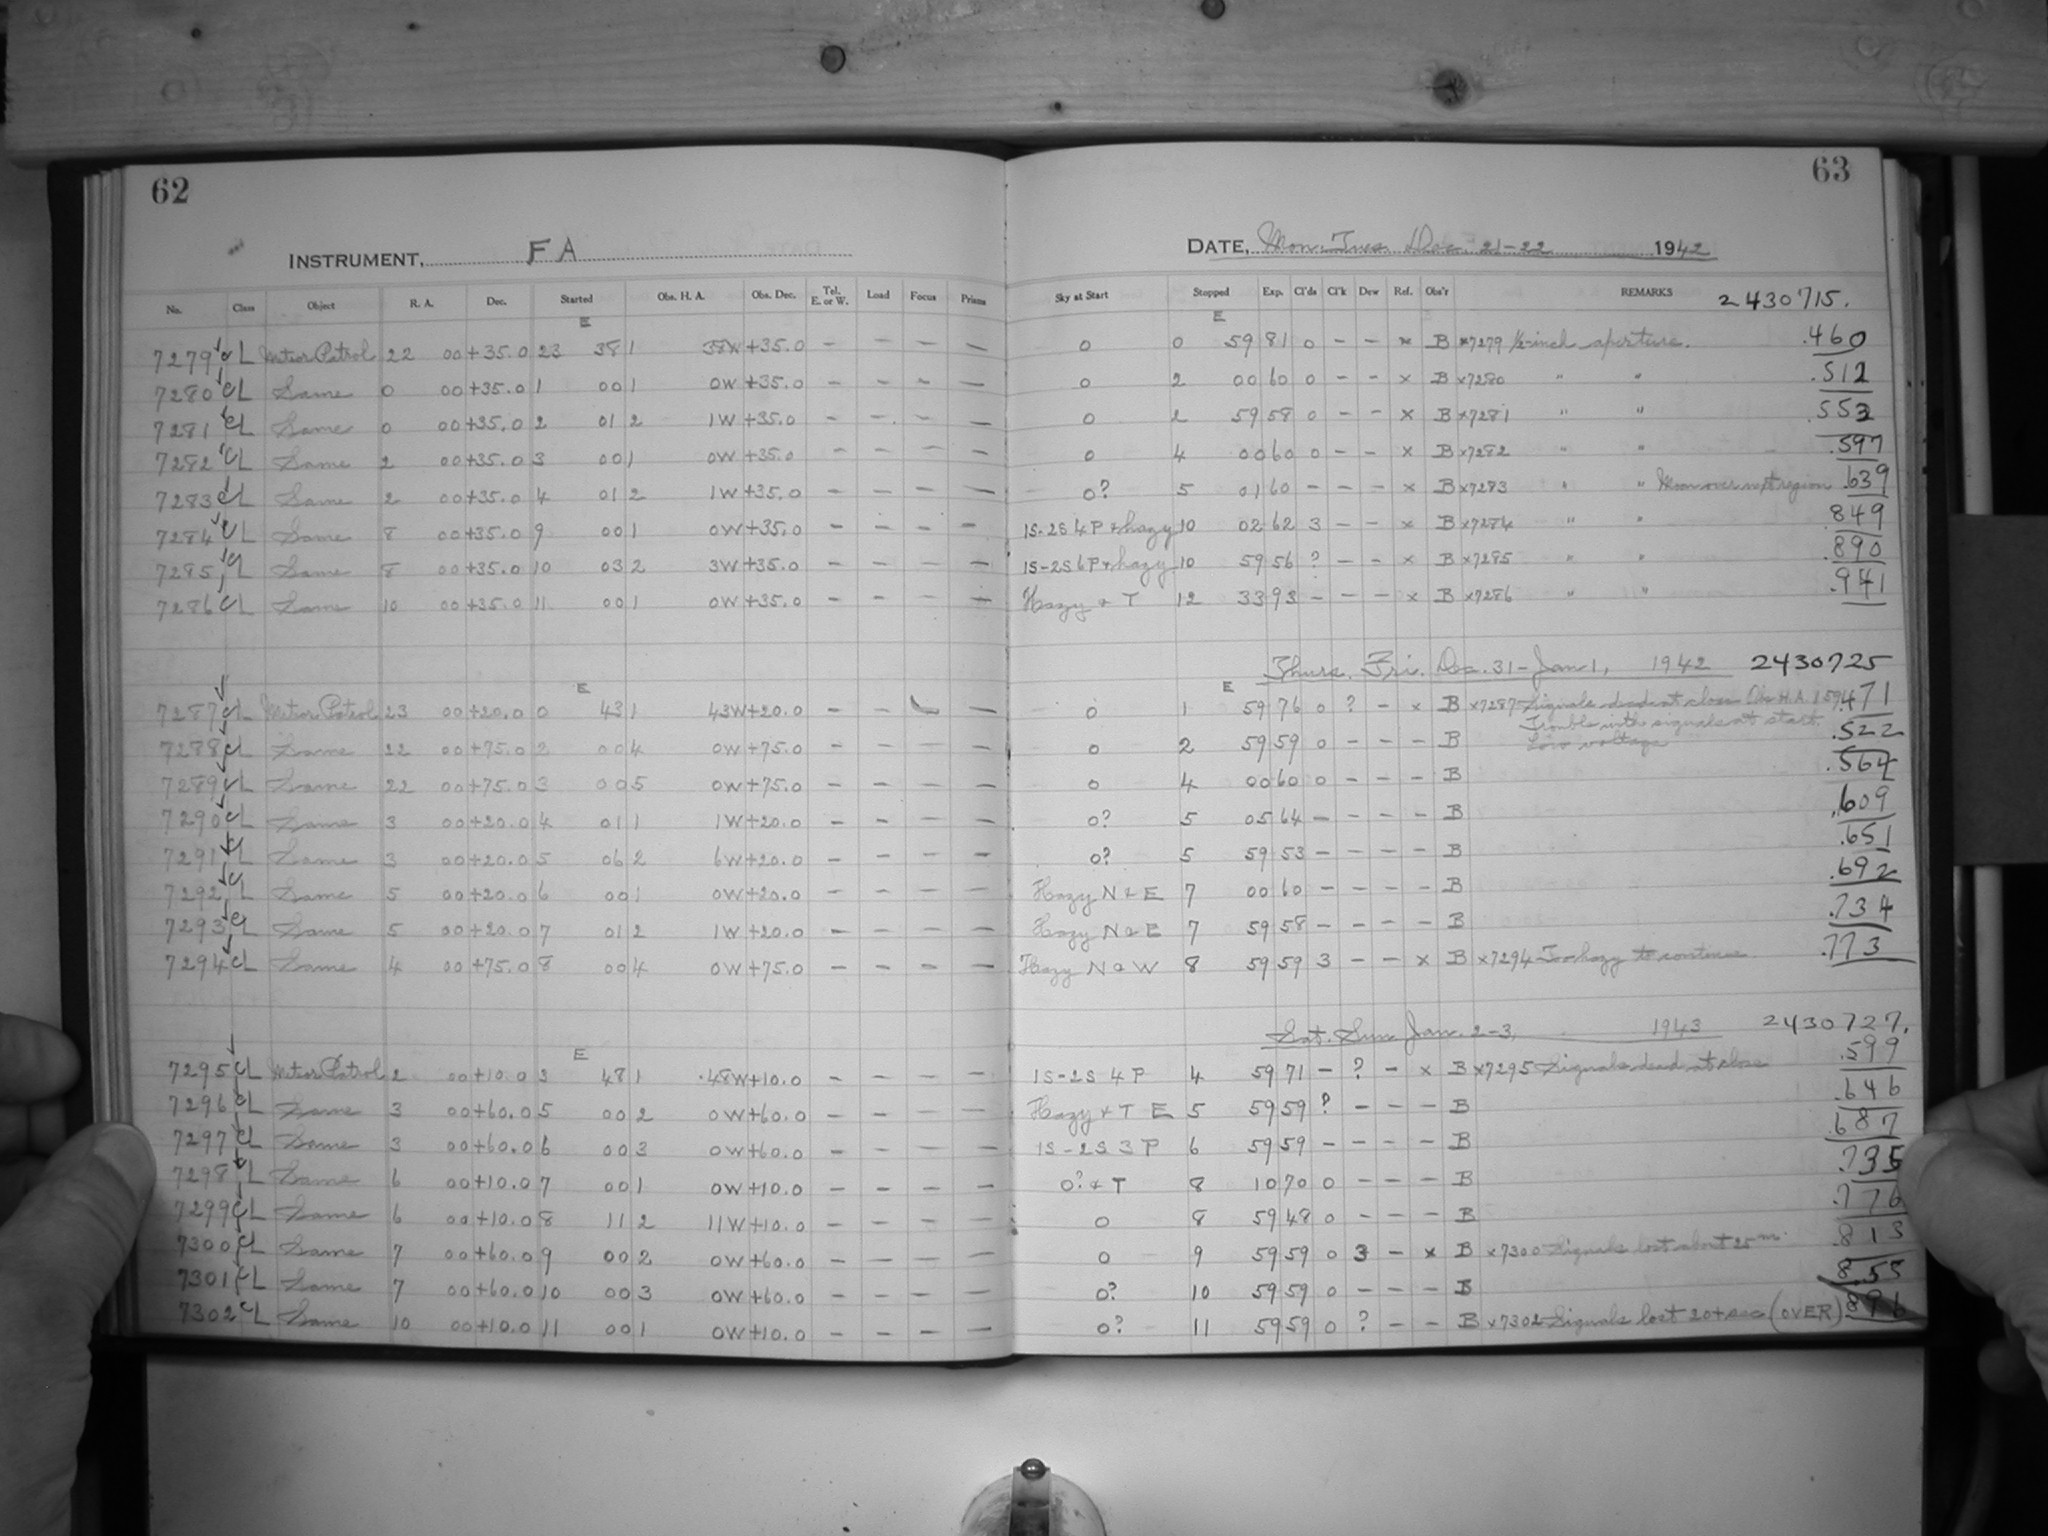 62
63
INSTRUMENT, FA
DATE, Mon. Tues. Dec. 21-22 1942
No. Class Object R. A. Dec. Started Obs. H. A. Obs. Dec. Tel. E. or W. Load Focus Prisms Sky at Start Stopped Exp. Cl'ds Cl'k Dew Ref. Obs'r REMARKS 2430715.
E E
7279 CL Meteor Patrol 22 00 +35.0 23 38 1 38W +35.0 – – – – 0 0 59 81 0 – – x B x7279 1/2-inch aperture. .460
7280 CL Same 0 00 +35.0 1 00 1 0W +35.0 – – – – 0 2 00 60 0 – – x B x7280 " " .512
7281 CL Same 0 00 +35.0 2 01 2 1W +35.0 – – – – 0 2 59 58 0 – – x B x7281 " " .553
7282 CL Same 2 00 +35.0 3 00 1 0W +35.0 – – – – 0 4 00 60 0 – – x B x7282 " " .597
7283 CL Same 2 00 +35.0 4 01 2 1W +35.0 – – – – 0? 5 01 60 – – – x B x7283 " " Moon over next region .639
7284 CL Same 8 00 +35.0 9 00 1 0W +35.0 – – – – 1S-2S 4P + hazy 10 02 62 3 – – x B x7284 " " .849
7285 CL Same 8 00 +35.0 10 03 2 3W +35.0 – – – – 1S-2S 6P + hazy 10 59 56 ? – – x B x7285 " " .890
7286 CL Same 10 00 +35.0 11 00 1 0W +35.0 – – – – Hazy + T 12 33 93 – – – x B x7286 " " .941
Thurs. Fri. Dec. 31 - Jan 1, 1942 2430725
E E
7287 CL Meteor Patrol 23 00 +20.0 0 43 1 43W +20.0 – – – 0 1 59 76 0 ? – x B x7287 Signals dead at close Obs H.A. 1 59 .471
Trouble with signals at start.
Low voltage
7288 CL Same 22 00 +75.0 2 00 4 0W +75.0 – – – – 0 2 59 59 0 – – – B .522
7289 CL Same 22 00 +75.0 3 00 5 0W +75.0 – – – – 0 4 00 60 0 – – – B .564
7290 CL Same 3 00 +20.0 4 01 1 1W +20.0 – – – – 0? 5 05 64 – – – – B .609
7291 CL Same 3 00 +20.0 5 06 2 6W +20.0 – – – – 0? 5 59 53 – – – – B .651
7292 CL Same 5 00 +20.0 6 00 1 0W +20.0 – – – – Hazy N & E 7 00 60 – – – – B .692
7293 CL Same 5 00 +20.0 7 01 2 1W +20.0 – – – – Hazy N & E 7 59 58 – – – – B .734
7294 CL Same 4 00 +75.0 8 00 4 0W +75.0 – – – – Hazy N & W 8 59 59 3 – – x B x7294 Too hazy to continue. .773
Sat. Sun. Jan. 2-3, 1943 2430727.
E
7295 CL Meteor Patrol 2 00 +10.0 3 48 1 48W +10.0 – – – – 1S-2S 4P 4 59 71 – ? – x B x7295 Signals dead at close .599
7296 CL Same 3 00 +60.0 5 00 2 0W +60.0 – – – – Hazy + T E 5 59 59 ? – – – B .646
7297 CL Same 3 00 +60.0 6 00 3 0W +60.0 – – – – 1S-2S 3P 6 59 59 – – – – B .687
7298 CL Same 6 00 +10.0 7 00 1 0W +10.0 – – – – 0? + T 8 10 70 0 – – – B .735
7299 CL Same 6 00 +10.0 8 11 2 11W +10.0 – – – – 0 8 59 48 0 – – – B .776
7300 CL Same 7 00 +60.0 9 00 2 0W +60.0 – – – – 0 9 59 59 0 3 – x B x7300 Signals lost about 25m. .813
7301 CL Same 7 00 +60.0 10 00 3 0W +60.0 – – – – 0? 10 59 59 0 – – – B .855
7302 CL Same 10 00 +10.0 11 00 1 0W +10.0 – – – – 0? 11 59 59 0 ? – – B x7302 Signals lost 20+ sec (OVER) .896